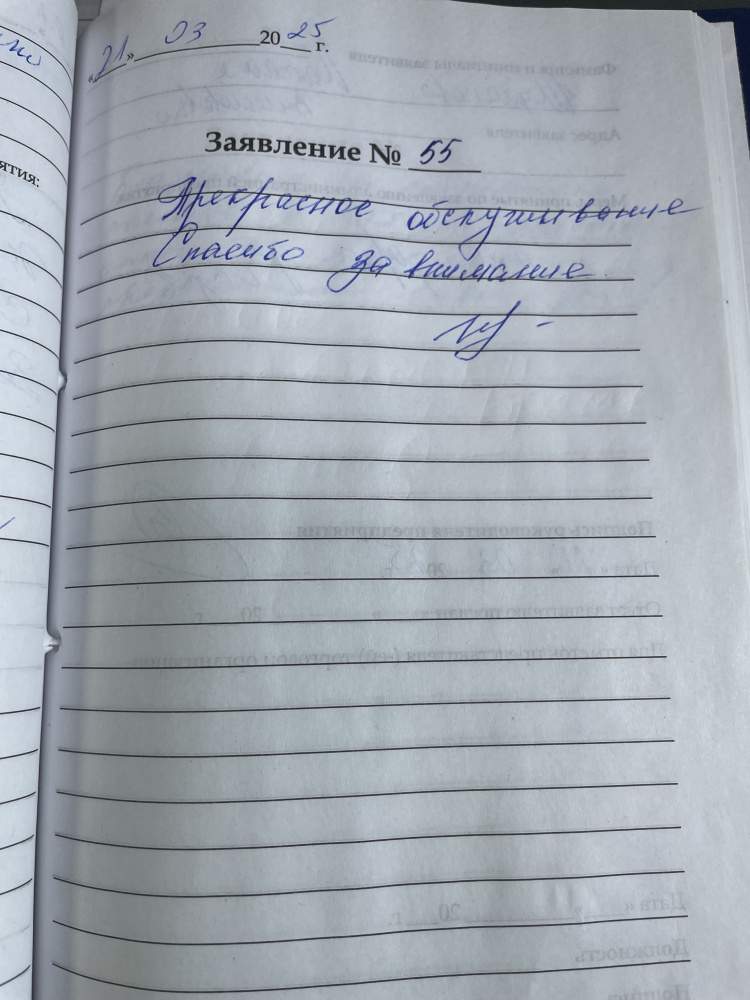 «21» 03 2025 г.
ятия:
Заявление № 55
Прекрасное обслуживание
Спасибо за внимание